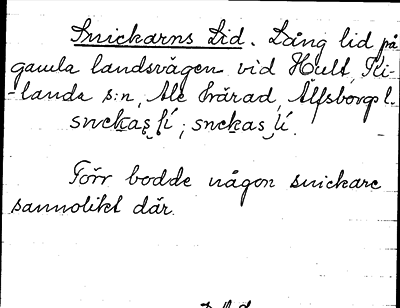 Snickarns Lid. Lång lid på
gamla landsvägen vid Hult, Ki-
-landa s:n, Ale härad, Älfsborgs l.
snekas lí ; snekas lí.
Förr bodde någon snickare
sannolikt där.